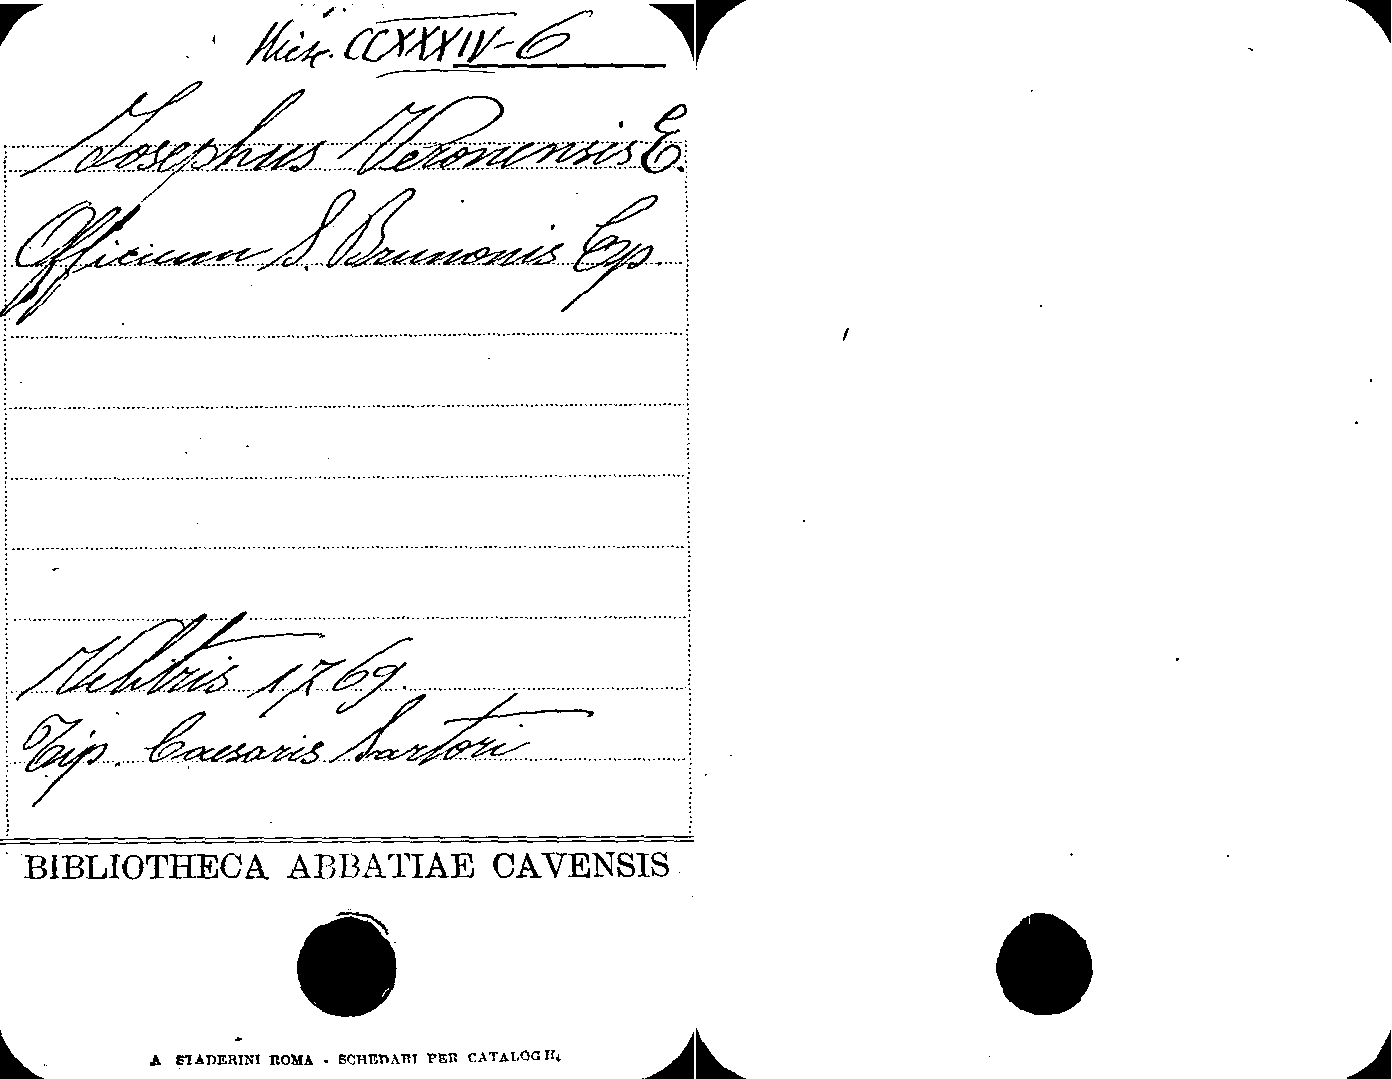 Misc. CCXXXIV-6
Josephus Veronensis E.
Officium S. Brunonis Ep.
Velitris 1769.
Tip. Caesaris Sartori
BIBLIOTHECA ABBATIAE CAVENSIS
A STADERINI ROMA - SCHEDARI PER CATALOGHI